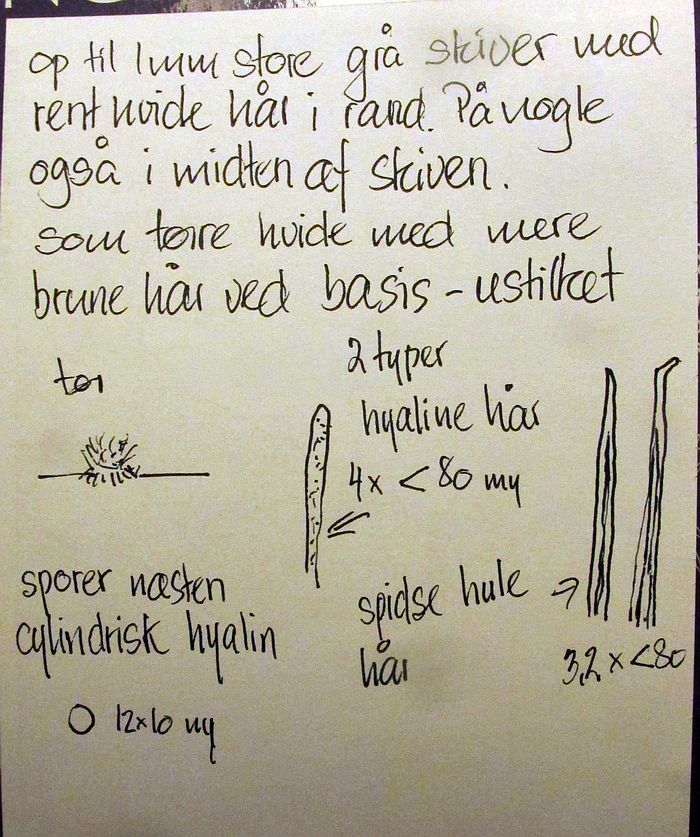 op til 1mm store grå skiver med
rent hvide hår i rand. På nogle
også i midten af skiven.
som tørre hvide med mere
brune hår ved basis - ustilket
tør
2 typer
hyaline hår
4x < 80 my
sporer næsten
cylindrisk hyalin
12x10 my
spidse hule
hår
3,2 x <80